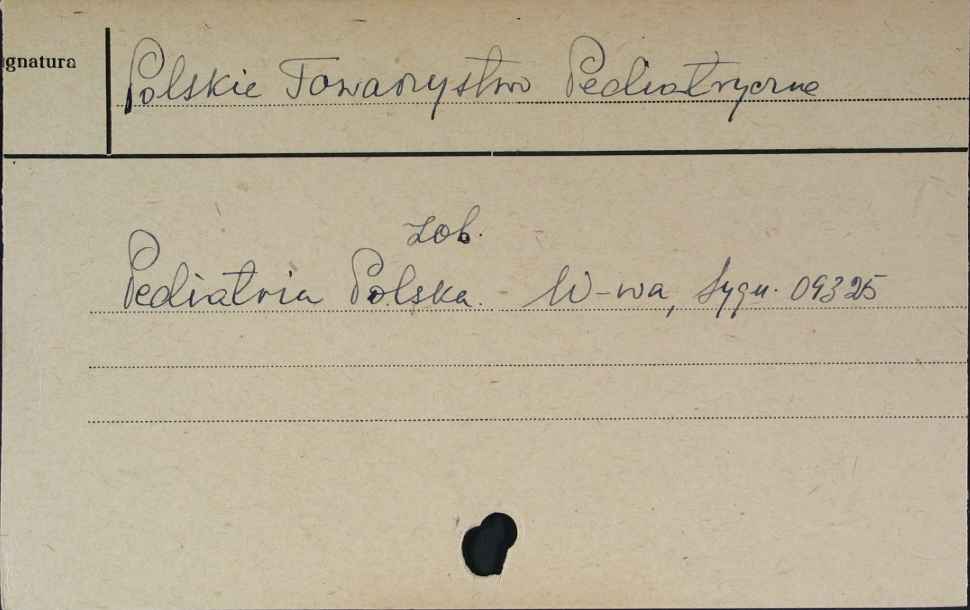 ignatura
Polskie Towarzystwo Pediatryczne
Zob.
Pediatria Polska. W-wa, Sygn. 09325